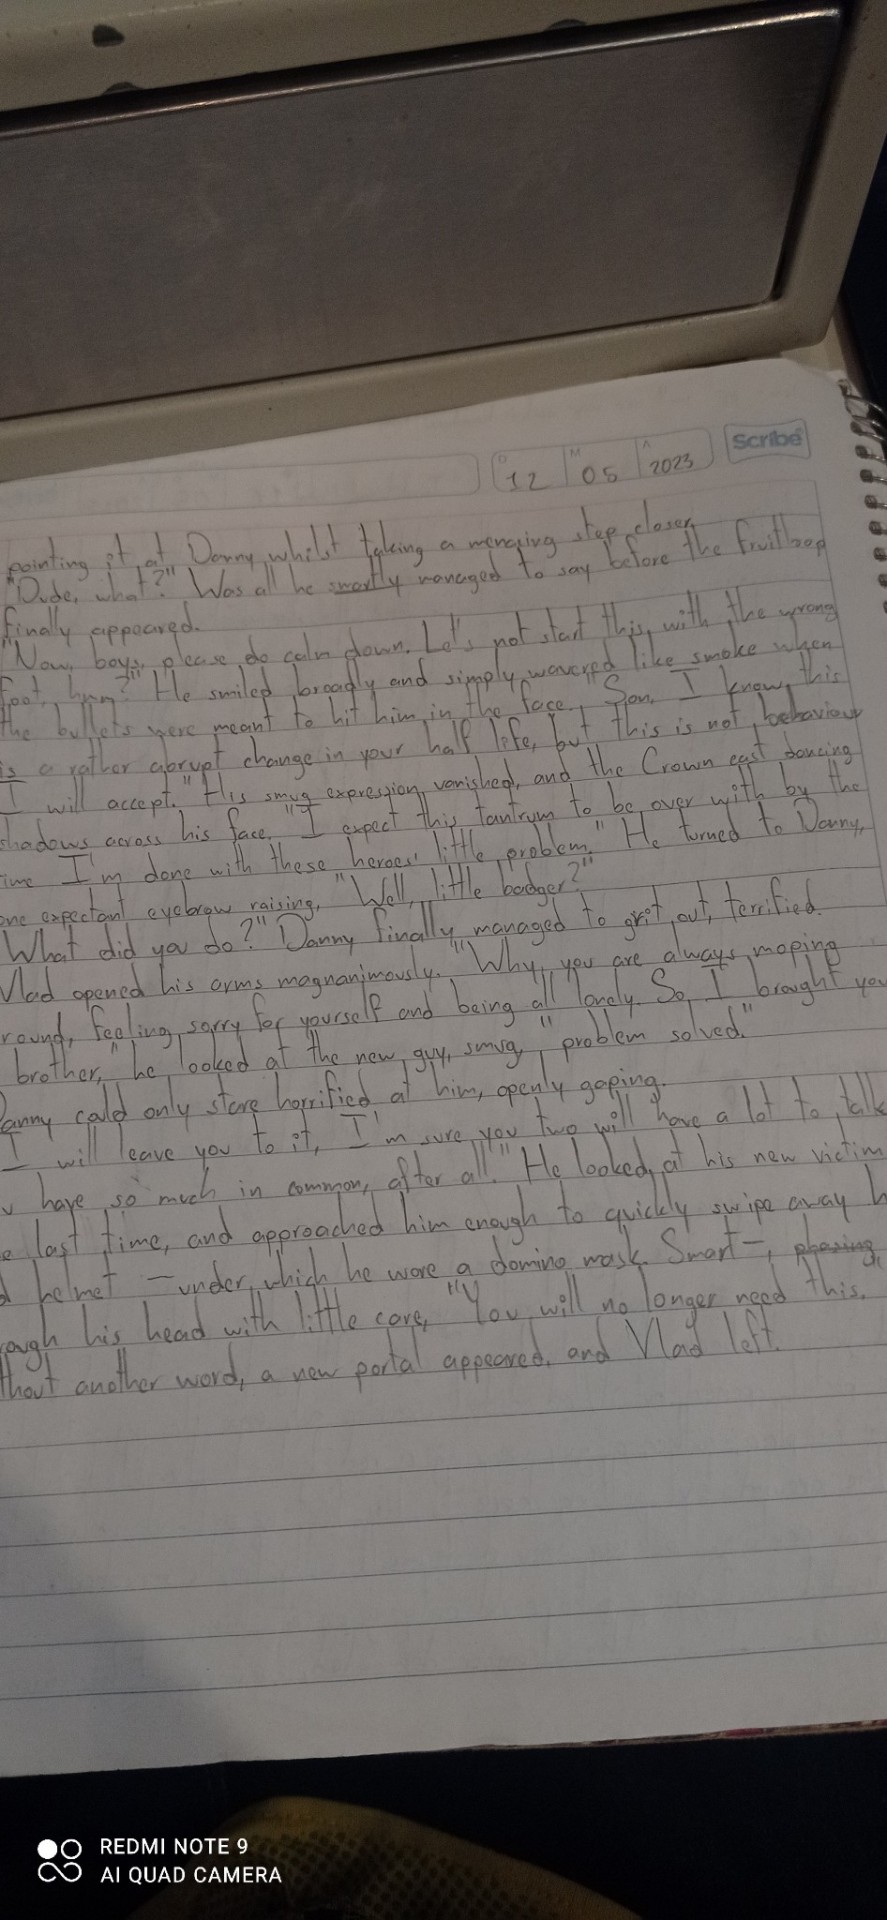 D M A
12 05 2023
Scribe
pointing it at Danny whilst taking a menacing step closer.
"Dude, what?" Was all he smartly managed to say before the fruitloop
finally appeared.
"Now, boys, please do calm down. Let's not start this with the wrong
foot, hmm?" He smiled broadly and simply wavered like smoke when
the bullets were meant to hit him in the face. "Son, I know this
is a rather abrupt change in your half life, but this is not behaviour
I will accept." His smug expression vanished, and the Crown cast dancing
shadows across his face. "I expect this tantrum to be over with by the
ime I'm done with these heroes' little problem." He turned to Danny,
one expectant eyebrow raising, "Well, little badger?"
"What did you do?" Danny finally managed to grit out, terrified.
Vlad opened his arms magnanimously. "Why, you are always moping
round, feeling sorry for yourself and being all lonely. So I brought you
brother," he looked at the new guy, smug, "problem solved."
Danny cold only stare horrified at him, openly gaping.
"I will leave you to it, I'm sure you two will have a lot to talk
u have so much in common, after all." He looked at his new victim
e last time, and approached him enough to quickly swipe away h
d helmet —under which he wore a domino mask. Smart—, phasing
rough his head with little care, "You will no longer need this.
thout another word, a new portal appeared, and Vlad left.
REDMI NOTE 9
AI QUAD CAMERA